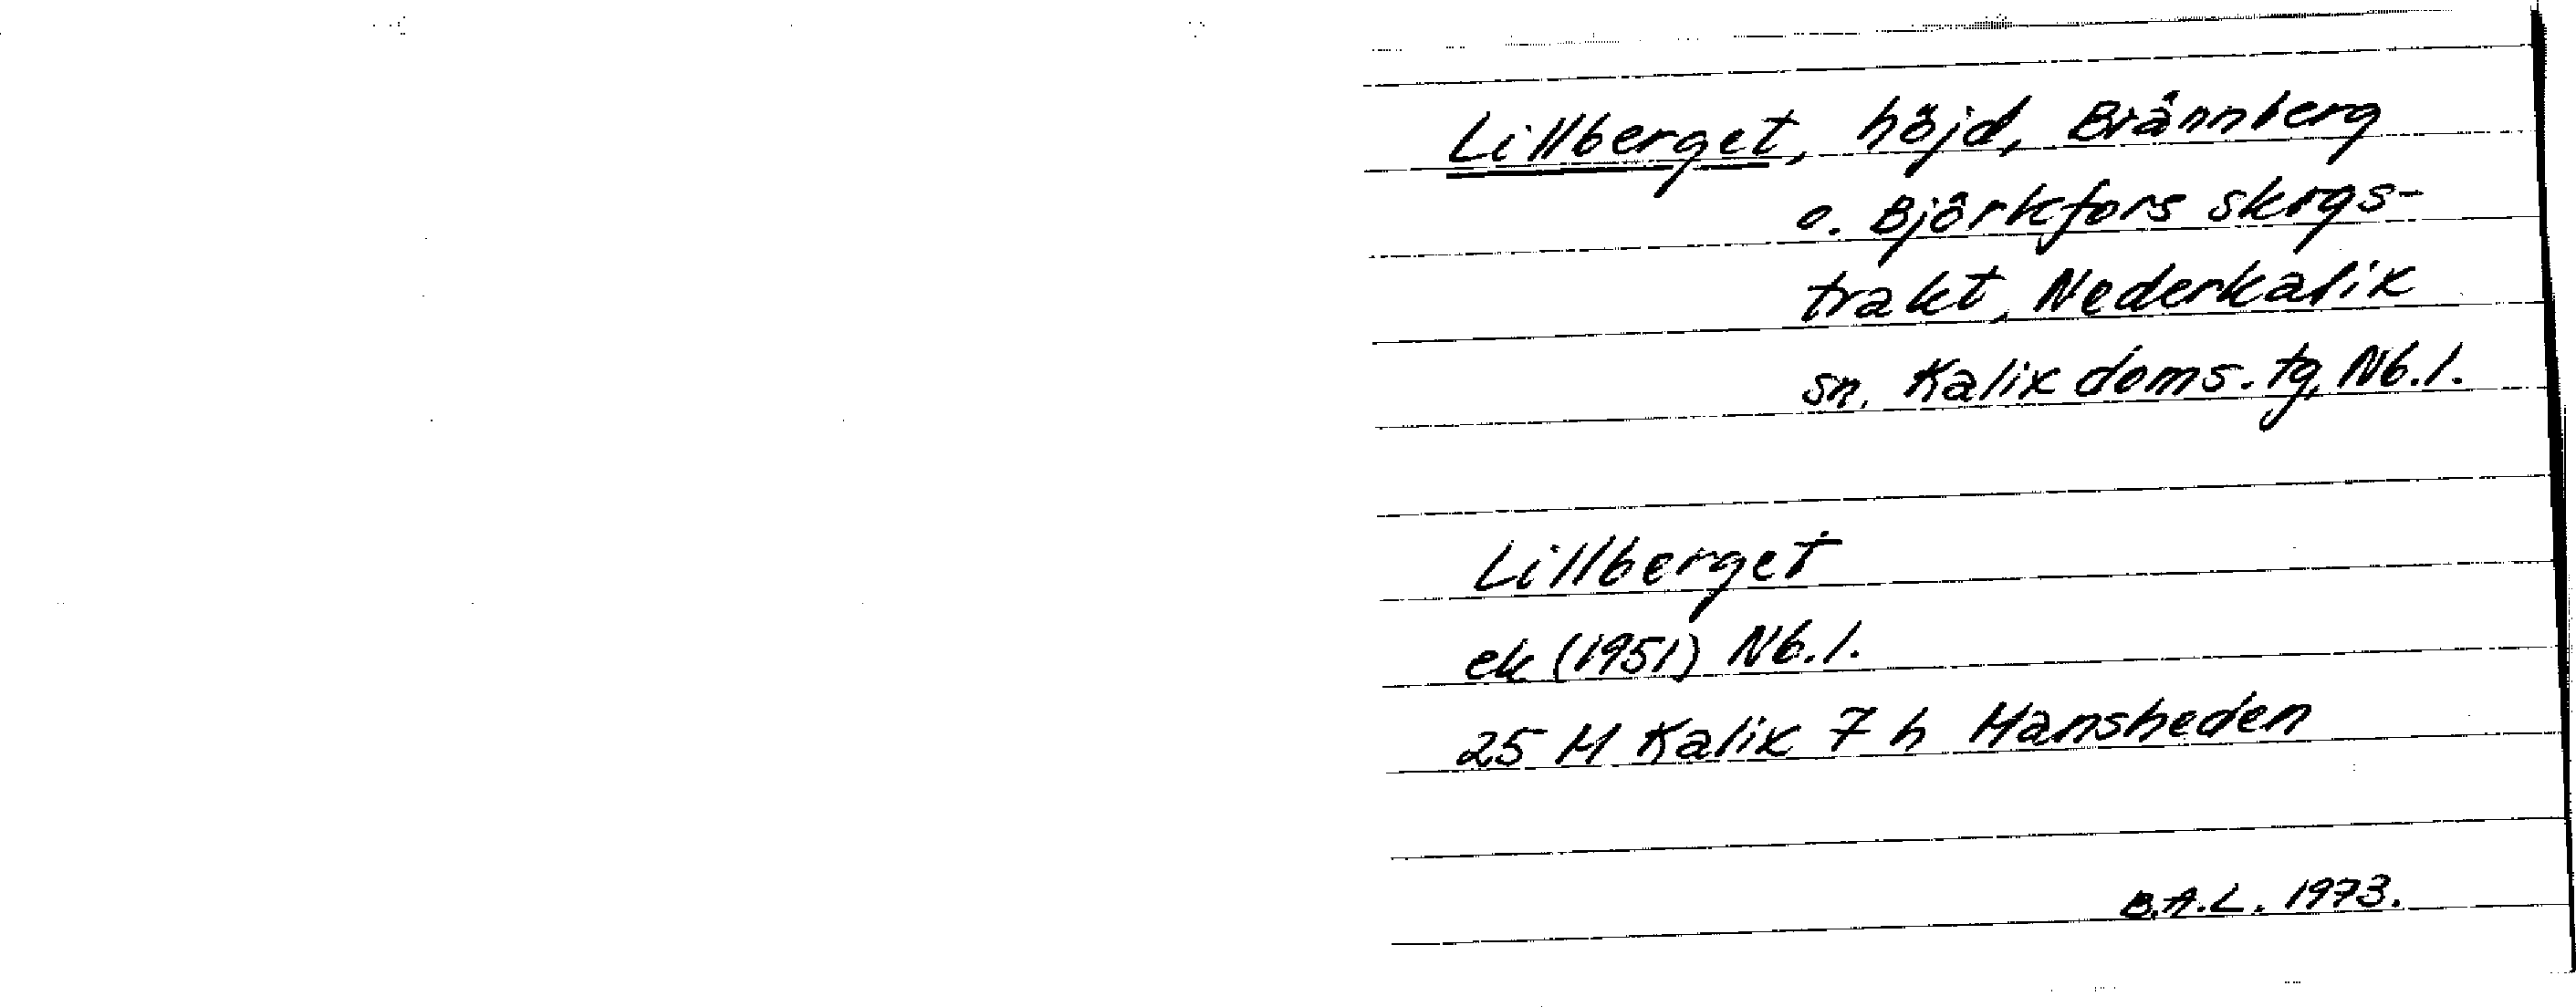 Lillberget, höjd, Brännberg
o. Björkfors skogs-
trakt, Nederkalix
sn. Kalix doms. tg, Nb. l.
Lillberget
ek (1951) Nb. l.
25 M Kalix 7 h Mansheden
B.A.L. 1973.